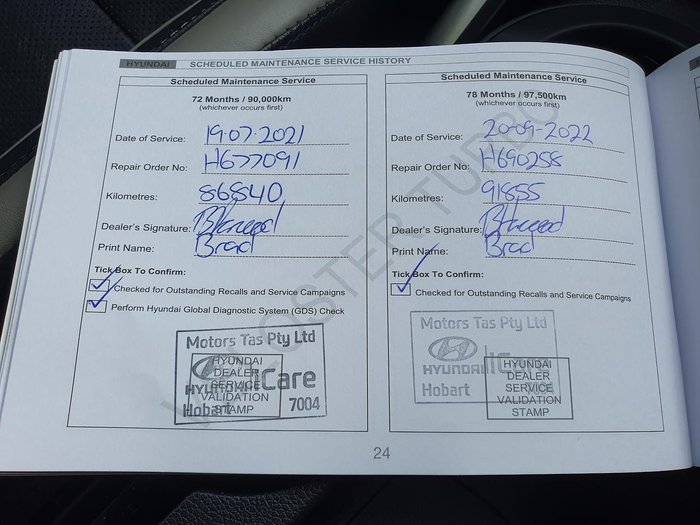 HYUNDAI SCHEDULED MAINTENANCE SERVICE HISTORY
Scheduled Maintenance Service
72 Months / 90,000km
(whichever occurs first)
Date of Service: 19.07.2021
Repair Order No: H677091
Kilometres: 86840
Dealer's Signature:
Print Name: Brad
Tick Box To Confirm:
Checked for Outstanding Recalls and Service Campaigns
Perform Hyundai Global Diagnostic System (GDS) Check
Motors Tas Pty Ltd
HYUNDAI iCare
Hobart 7004
HYUNDAI
DEALER
SERVICE
VALIDATION
STAMP
Scheduled Maintenance Service
78 Months / 97,500km
(whichever occurs first)
Date of Service: 20-09-2022
Repair Order No: H690258
Kilometres: 91855
Dealer's Signature:
Print Name: Brad
Tick Box To Confirm:
Checked for Outstanding Recalls and Service Campaigns
Motors Tas Pty Ltd
HYUNDAI
Hobart
HYUNDAI
DEALER
SERVICE
VALIDATION
STAMP
VELOSTER TURBO
24